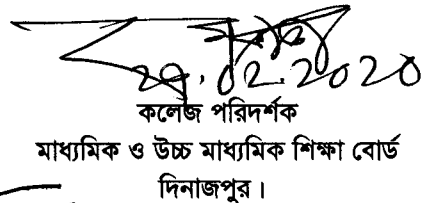 ২৭.০২.২০২০
কলেজ পরিদর্শক
মাধ্যমিক ও উচ্চ মাধ্যমিক শিক্ষা বোর্ড
দিনাজপুর।